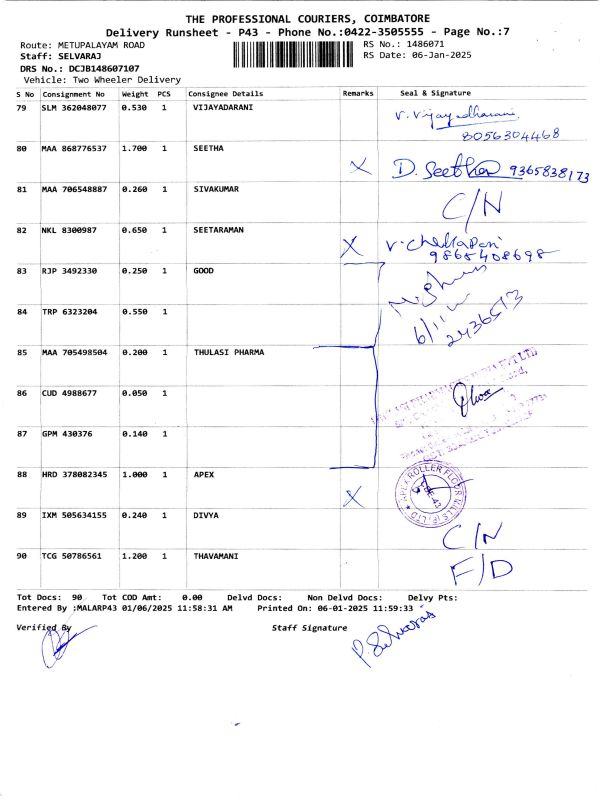 THE PROFESSIONAL COURIERS, COIMBATORE
Delivery Runsheet - P43 - Phone No.:0422-3505555 - Page No.:7
Route: METUPALAYAM ROAD RS No.: 1486071
Staff: SELVARAJ RS Date: 06-Jan-2025
DRS No.: DCJB148607107
Vehicle: Two Wheeler Delivery
S No Consignment No Weight PCS Consignee Details Remarks Seal & Signature
79 SLM 362048077 0.530 1 VIJAYADARANI V. Vijayadharani
8056304468
80 MAA 868776537 1.700 1 SEETHA X D. Seetha 9365838173
81 MAA 706548887 0.260 1 SIVAKUMAR C/N
82 NKL 8300987 0.650 1 SEETARAMAN X V. Chellapan
9865408698
83 RJP 3492330 0.250 1 GOOD
84 TRP 6323204 0.550 1 6/1/
2436513
85 MAA 705498504 0.200 1 THULASI PHARMA
86 CUD 4988677 0.050 1
87 GPM 430376 0.140 1
88 HRD 378082345 1.000 1 APEX X ROLLER FLOUR MILLS (P) LTD
89 IXM 505634155 0.240 1 DIVYA C/N
90 TCG 50786561 1.200 1 THAVAMANI F/D
Tot Docs: 90 Tot COD Amt: 0.00 Delvd Docs: Non Delvd Docs: Delvy Pts:
Entered By :MALARP43 01/06/2025 11:58:31 AM Printed On: 06-01-2025 11:59:33
Verified By Staff Signature
P. Selvaraj